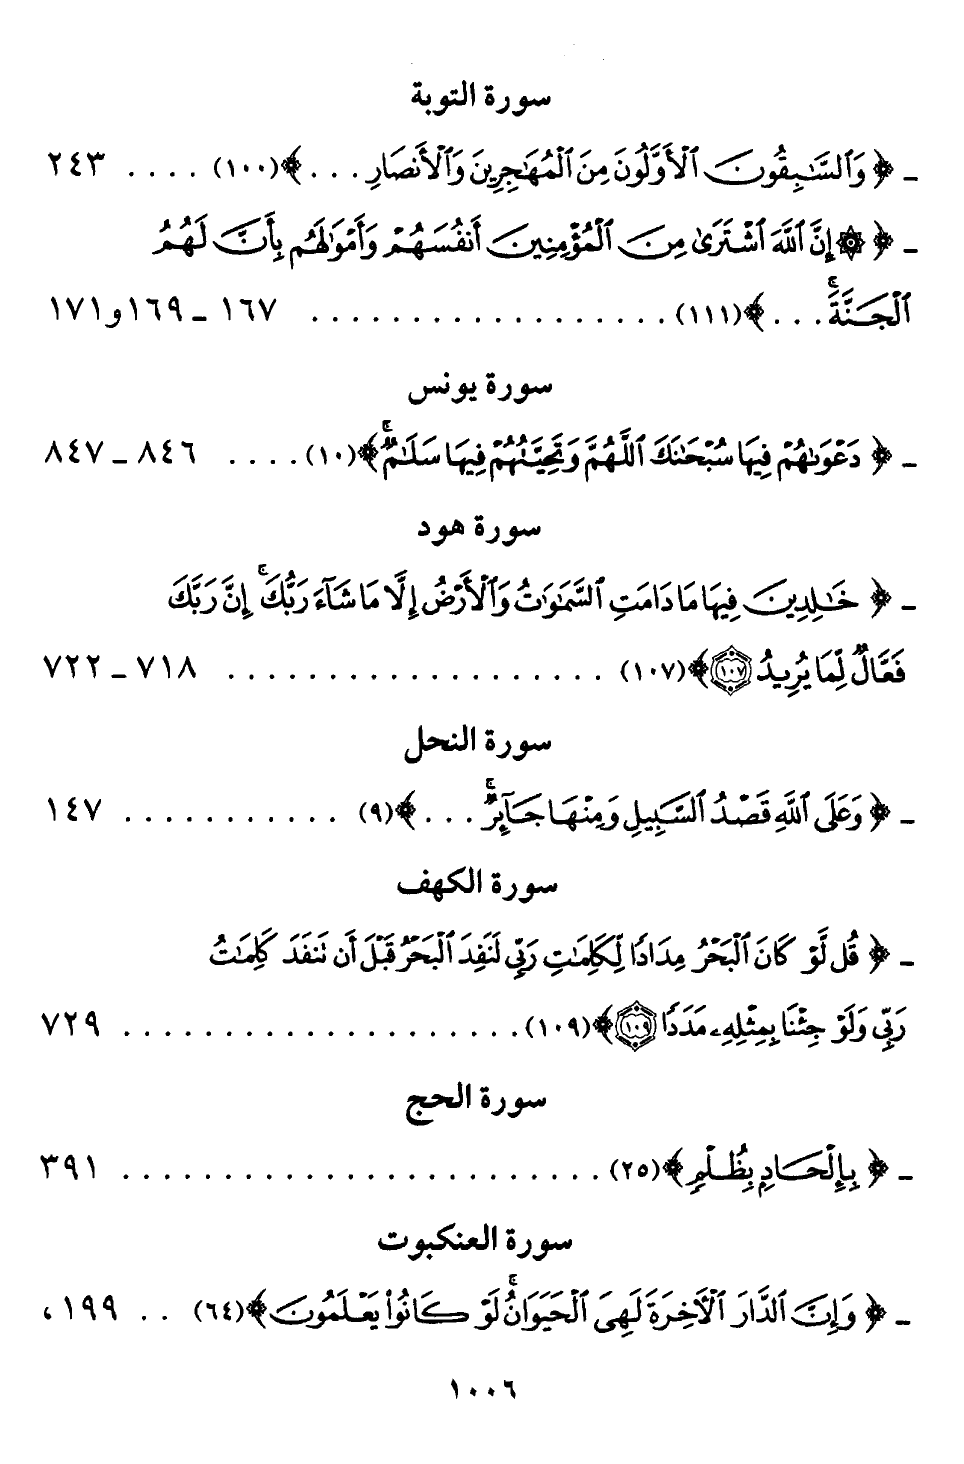 سورة التوبة
ـ ﴿ وَٱلسَّـٰبِقُونَ ٱلْأَوَّلُونَ مِنَ ٱلْمُهَـٰجِرِينَ وَٱلْأَنصَارِ . . . ﴾ (١٠٠) . . . . ٢٤٣
ـ ﴿ ۞ إِنَّ ٱللَّهَ ٱشْتَرَىٰ مِنَ ٱلْمُؤْمِنِينَ أَنفُسَهُمْ وَأَمْوَٰلَهُم بِأَنَّ لَهُمُ
ٱلْجَنَّةَ ۚ . . . ﴾ (١١١) . . . . . . . . . . . . . . . . . . . ١٦٧ ـ ١٦٩ و ١٧١
سورة يونس
ـ ﴿ دَعْوَىٰهُمْ فِيهَا سُبْحَـٰنَكَ ٱللَّهُمَّ وَتَحِيَّتُهُمْ فِيهَا سَلَـٰمٌ ۚ ﴾ (١٠) . . . . ٨٤٦ ـ ٨٤٧
سورة هود
ـ ﴿ خَـٰلِدِينَ فِيهَا مَا دَامَتِ ٱلسَّمَـٰوَٰتُ وَٱلْأَرْضُ إِلَّا مَا شَآءَ رَبُّكَ ۚ إِنَّ رَبَّكَ
فَعَّالٌ لِّمَا يُرِيدُ ١٠٧ ﴾ (١٠٧) . . . . . . . . . . . . . . . . . . . ٧١٨ ـ ٧٢٢
سورة النحل
ـ ﴿ وَعَلَى ٱللَّهِ قَصْدُ ٱلسَّبِيلِ وَمِنْهَا جَآئِرٌ ۚ . . . ﴾ (٩) . . . . . . . . . . . ١٤٧
سورة الكهف
ـ ﴿ قُل لَّوْ كَانَ ٱلْبَحْرُ مِدَادًا لِّكَلِمَـٰتِ رَبِّى لَنَفِدَ ٱلْبَحْرُ قَبْلَ أَن تَنفَدَ كَلِمَـٰتُ
رَبِّى وَلَوْ جِئْنَا بِمِثْلِهِۦ مَدَدًا ١٠٩ ﴾ (١٠٩) . . . . . . . . . . . . . . . . . . . . ٧٢٩
سورة الحج
ـ ﴿ بِإِلْحَادٍ بِظُلْمٍ ﴾ (٢٥) . . . . . . . . . . . . . . . . . . . . . . . . ٣٩١
سورة العنكبوت
ـ ﴿ وَإِنَّ ٱلدَّارَ ٱلْـَٔاخِرَةَ لَهِىَ ٱلْحَيَوَانُ ۚ لَوْ كَانُوا۟ يَعْلَمُونَ ﴾ (٦٤) . . ١٩٩،
١٠٠٦